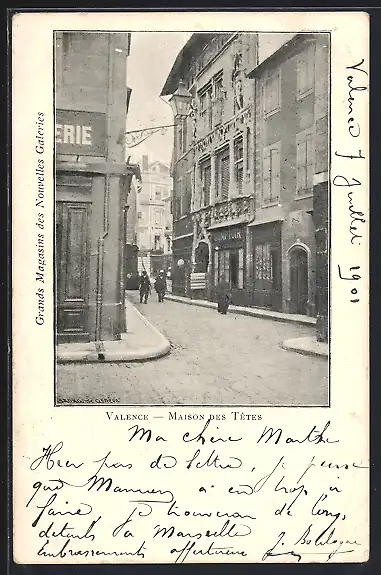 Grands Magasins des Nouvelles Galeries
ERIE
Valence 7 Juillet 1901
VALENCE — MAISON DES TÊTES
Ma chère Marthe
Hier pas de lettre, je pense
que Mamy a eu trop à
faire, je trouverai de longs
détails à Marseille
Embrassements affectueux